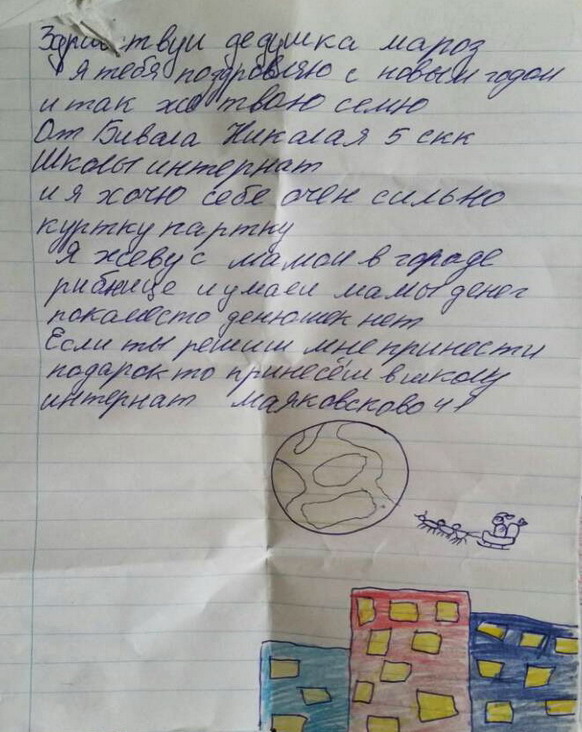 Здравствуи дедушка мароз
Я тебя поздровляю с новым годом
и так же тваю семю
От Бивала Николая 5 скк
Школы интернат
и я хочу себе очен сильно
куртку партку
Я жеву с мамои в городе
рибнице и умаеи мамы денег
покаместо денюшек нет
Если ты решиш мне принести
подарок то принесёш в школу
интернат маяковсково 41